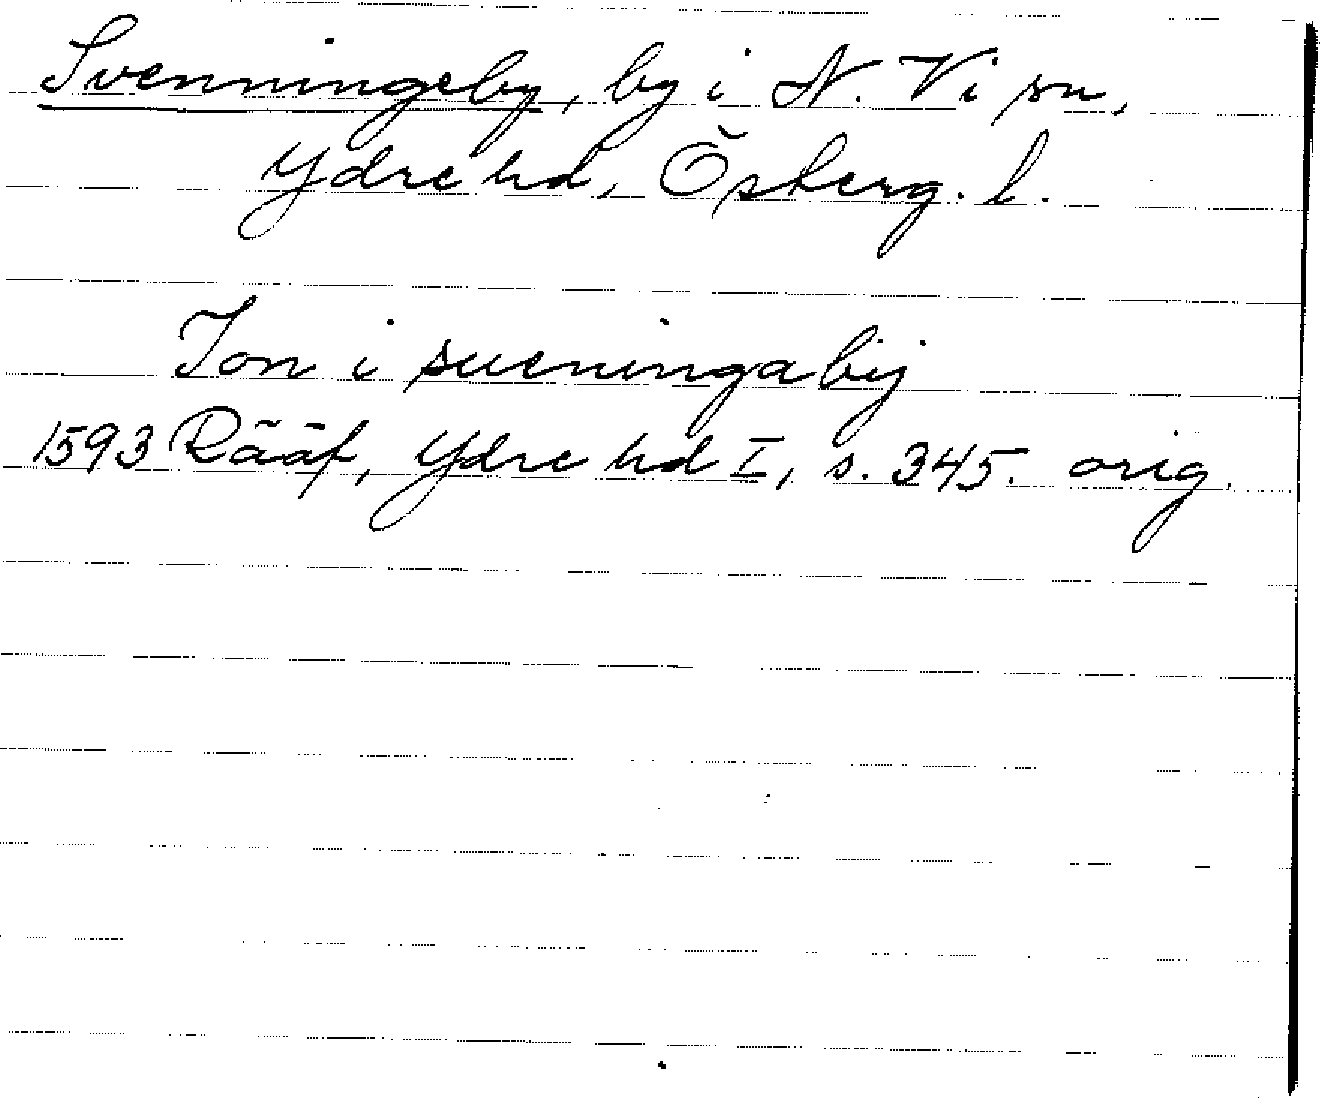 Svenningeby, by i N. Vi sn,
Ydre hd, Österg. l.
Jon i sueningabij
1593 Rääf, Ydre hd I, s. 345. orig.